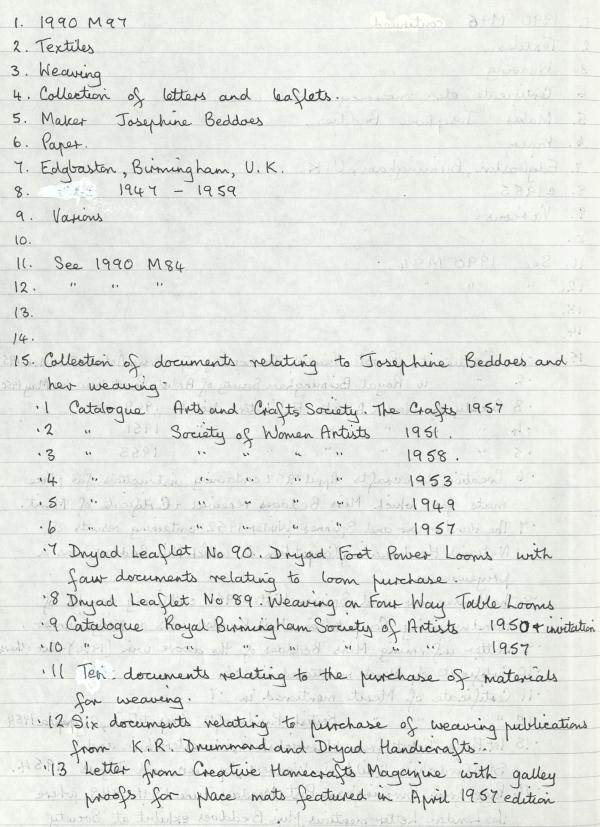 1. 1990 M97
2. Textiles
3. Weaving
4. Collection of letters and leaflets.
5. Maker Josephine Beddoes
6. Paper.
7. Edgbaston, Birmingham, U.K.
8. 1947 - 1959
9. Various
10.
11. See 1990 M84
12. " " "
13.
14.
15. Collection of documents relating to Josephine Beddoes and
her weaving.
.1 Catalogue Arts and Crafts Society. The Crafts 1957
.2 " Society of Women Artists 1951.
.3 " " " " " 1958.
.4 " " " " " 1953
.5 " " " " " 1949
.6 " " " " " 1957
.7 Dryad Leaflet No 90. Dryad Foot Power Looms with
four documents relating to loom purchase.
.8 Dryad Leaflet No 89. Weaving on Four Way Table Looms
.9 Catalogue Royal Birmingham Society of Artists 1950 + invitation
.10 " " " " " 1957
.11 Ten documents relating to the purchase of materials
for weaving.
.12 Six documents relating to purchase of weaving publications
from K.R. Drummond and Dryad Handicrafts.
.13 Letter from Creative Homecrafts Magazine with galley
proofs for place mats featured in April 1957 edition